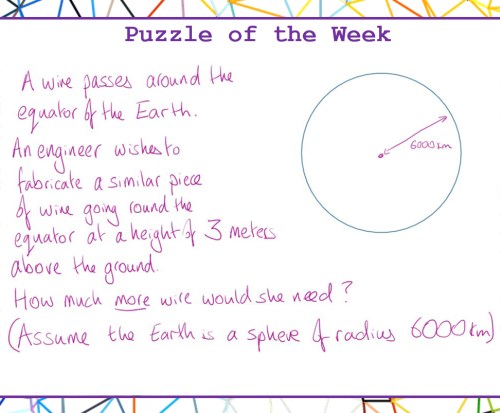 Puzzle of the Week
A wire passes around the
equator of the Earth.
6000 km
An engineer wishes to
fabricate a similar piece
of wire going round the
equator at a height of 3 meters
above the ground.
How much more wire would she need?
(Assume the Earth is a sphere of radius 6000 km)